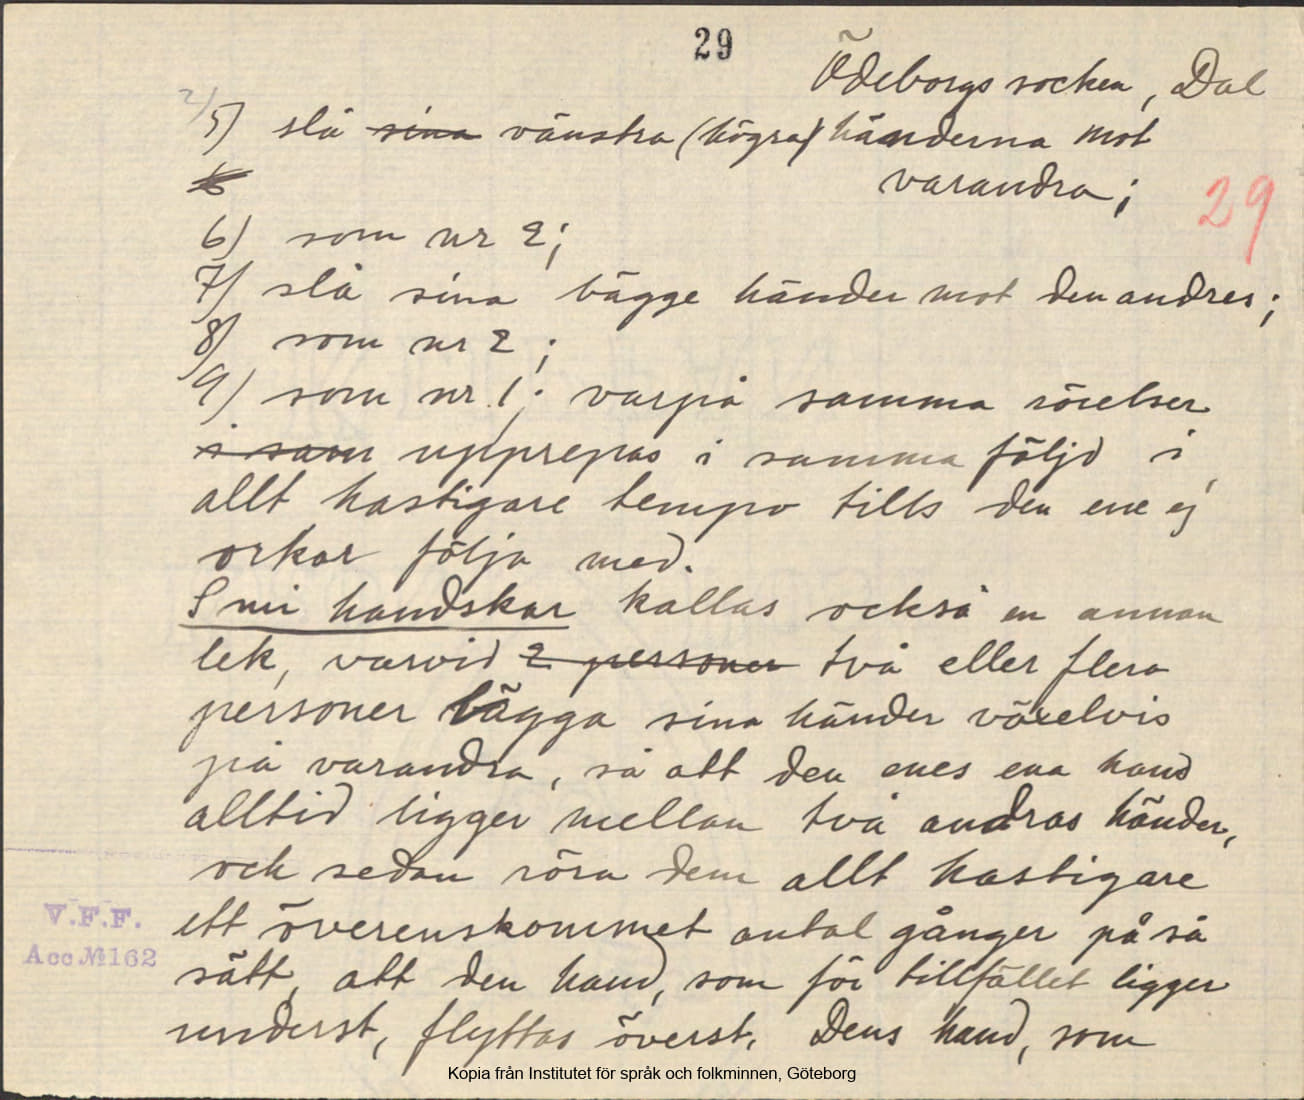 29
Ödeborgs socken, Dal
2/
5) slå sina vänstra (högra) händerna mot
varandra;
29
6
6) som nr 2;
7) slå sina bägge händer mot den andres;
8) som nr 2;
9) som nr 1; varpå samma rörelser
i sam upprepas i samma följd i
allt hastigare tempo tills den ene ej
orkar följa med.
Smi handskar kallas också en annan
lek, varvid 2 personer två eller flera
personer lägga sina händer växelvis
på varandra, så att den enes ena hand
alltid ligger mellan två andras händer,
och sedan röra dem allt hastigare
ett överenskommet antal gånger på så
sätt, att den hand, som för tillfället ligger
underst, flyttas överst. Dens hand, som
V.F.F.
Acc № 162
Kopia från Institutet för språk och folkminnen, Göteborg